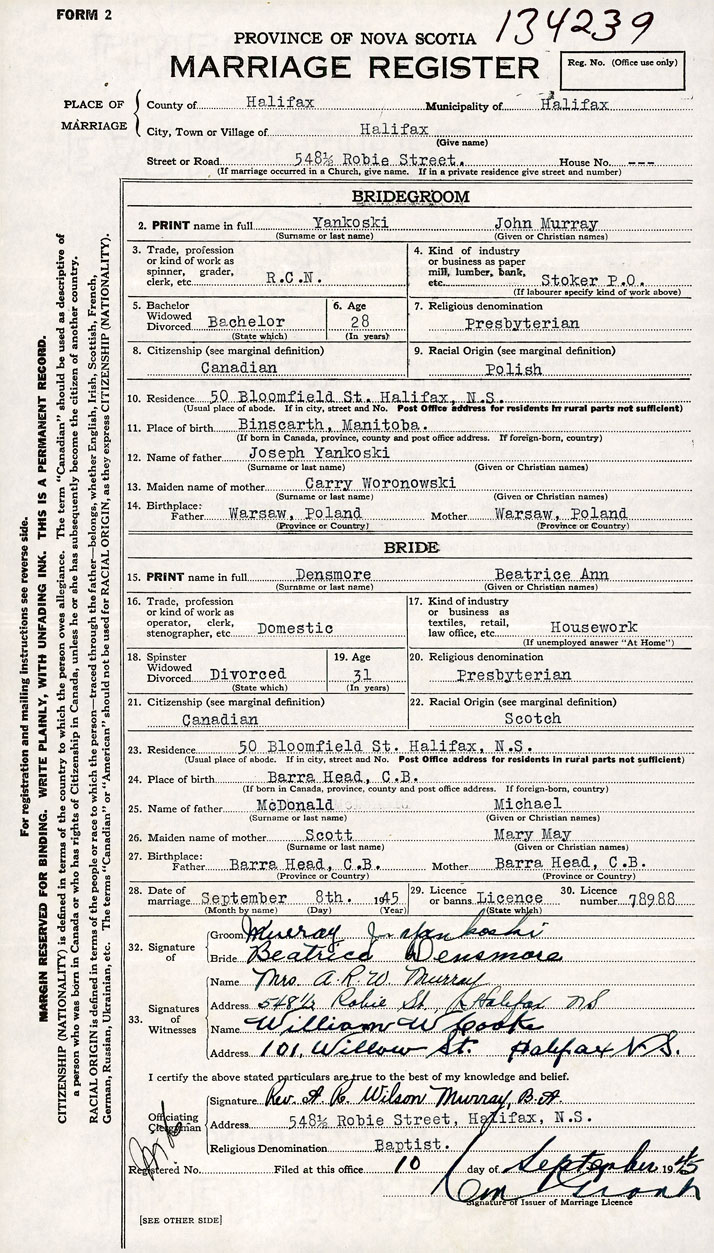 FORM 2
134239
PROVINCE OF NOVA SCOTIA
MARRIAGE REGISTER
Reg. No. (Office use only)
PLACE OF MARRIAGE
County of Halifax Municipality of Halifax
City, Town or Village of Halifax
(Give name)
Street or Road 548½ Robie Street. House No. ---
(If marriage occurred in a Church, give name. If in a private residence give street and number)
BRIDEGROOM
2. PRINT name in full Yankoski John Murray
(Surname or last name) (Given or Christian names)
3. Trade, profession or kind of work as spinner, grader, clerk, etc. R.C.N.
4. Kind of industry or business as paper mill, lumber, bank, etc. Stoker P.O.
(If labourer specify kind of work above)
5. Bachelor Widowed Divorced Bachelor
(State which)
6. Age 28
(In years)
7. Religious denomination
Presbyterian
8. Citizenship (see marginal definition)
Canadian
9. Racial Origin (see marginal definition)
Polish
10. Residence 50 Bloomfield St. Halifax, N.S.
(Usual place of abode. If in city, street and No. Post Office address for residents in rural parts not sufficient)
11. Place of birth Binscarth, Manitoba.
(If born in Canada, province, county and post office address. If foreign-born, country)
12. Name of father Joseph Yankoski
(Surname or last name) (Given or Christian names)
13. Maiden name of mother Carry Woronowski
(Surname or last name) (Given or Christian names)
14. Birthplace:
Father Warsaw, Poland Mother Warsaw, Poland
(Province or Country) (Province or Country)
BRIDE
15. PRINT name in full Densmore Beatrice Ann
(Surname or last name) (Given or Christian names)
16. Trade, profession or kind of work as operator, clerk, stenographer, etc. Domestic
17. Kind of industry or business as textiles, retail, law office, etc. Housework
(If unemployed answer "At Home")
18. Spinster Widowed Divorced Divorced
(State which)
19. Age 31
(In years)
20. Religious denomination
Presbyterian
21. Citizenship (see marginal definition)
Canadian
22. Racial Origin (see marginal definition)
Scotch
23. Residence 50 Bloomfield St. Halifax, N.S.
(Usual place of abode. If in city, street and No. Post Office address for residents in rural parts not sufficient)
24. Place of birth Barra Head, C.B.
(If born in Canada, province, county and post office address. If foreign-born, country)
25. Name of father McDonald Michael
(Surname or last name) (Given or Christian names)
26. Maiden name of mother Scott Mary May
(Surname or last name) (Given or Christian names)
27. Birthplace:
Father Barra Head, C.B. Mother Barra Head, C.B.
(Province or Country) (Province or Country)
28. Date of marriage September 8th. 1945
(Month by name) (Day) (Year)
29. Licence or banns Licence
(State which)
30. Licence number 78988
32. Signature of
Groom Murray J. Yankoski
Bride Beatrice Densmore
33. Signatures of Witnesses
Name Mrs. A. R. W. Murray
Address 548½ Robie St. Halifax NS
Name William W Cooke
Address 101, Willow St. Halifax N.S.
I certify the above stated particulars are true to the best of my knowledge and belief.
Officiating Clergyman
Signature Rev. A. R. Wilson Murray, B.A.
Address 548½ Robie Street, Halifax, N.S.
Religious Denomination Baptist.
Registered No. Filed at this office 10 day of September 1945
Signature of Issuer of Marriage Licence
[SEE OTHER SIDE]
For registration and mailing instructions see reverse side.
MARGIN RESERVED FOR BINDING. WRITE PLAINLY, WITH UNFADING INK. THIS IS A PERMANENT RECORD.
CITIZENSHIP (NATIONALITY) is defined in terms of the country to which the person owes allegiance. The term "Canadian" should be used as descriptive of
a person who was born in Canada or who has rights of Citizenship in Canada, unless he or she has subsequently become the citizen of another country.
RACIAL ORIGIN is defined in terms of the people or race to which the person—traced through the father—belongs, whether English, Irish, Scottish, French,
German, Russian, Ukrainian, etc. The terms "Canadian" or "American" should not be used for RACIAL ORIGIN, as they express CITIZENSHIP (NATIONALITY).